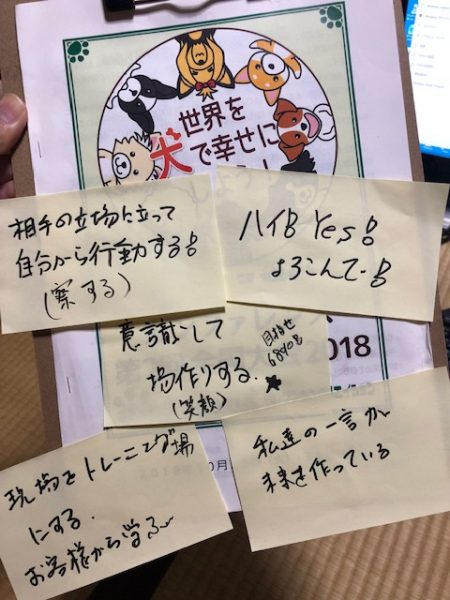 世界を
犬で幸せに
相手の立場に立って
自分から行動する!
(察する)
ハイ! Yes!
よろこんで!
意識して
場作りする。
(笑顔)
目指せ
2018
現場をトレーニング場
にする。
お客様から学ぶ
私達の一言が
未来を作っている